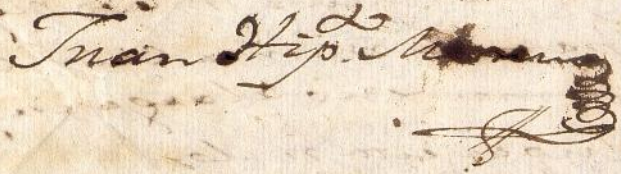 Juan Hip.º Moreno